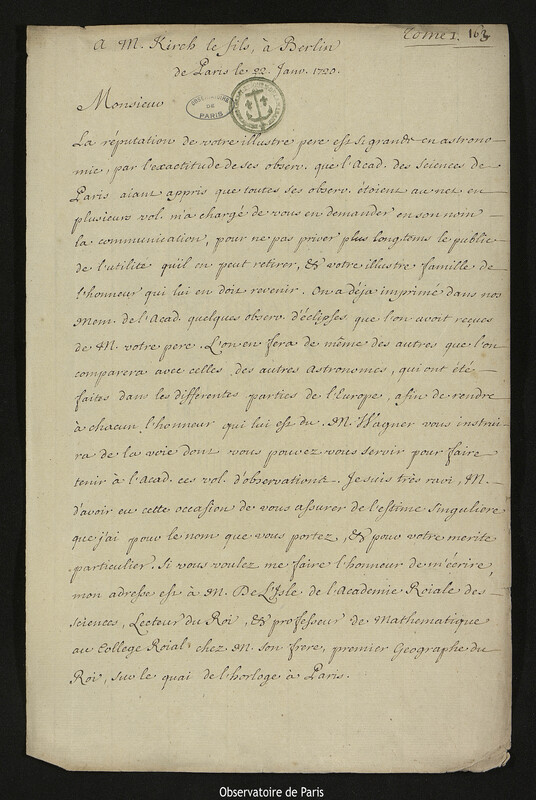 Tome I. 163
A M. Kirch le fils, à Berlin
de Paris le 22. Janv. 1720.
Monsieur
OBSERVATOIRE DE PARIS
La réputation de votre illustre pere est si grande en astrono-
mie, par l'exactitude de ses observ. que l'Acad. des Sciences de
Paris aiant appris que toutes ses observ. étoient au net en
plusieurs vol. m'a chargé de vous en demander en son nom
la communication, pour ne pas priver plus longtems le public
de l'utilité qu'il en peut retirer, & votre illustre famille de
l'honneur qui lui en doit revenir. On a déja imprimé dans nos
Mem. de l'Acad. quelques observ. d'éclipses que l'on avoit reçues
de M. votre pere. L'on en fera de même des autres que l'on
comparera avec celles des autres Astronomes, qui ont été
faites dans les différentes parties de l'Europe, afin de rendre
à chacun l'honneur qui lui est du. M. Wagner vous instrui-
ra de la voie dont vous pouvez vous servir pour faire
tenir à l'Acad. ces vol. d'observations. Je suis très ravi, M.
d'avoir eu cette occasion de vous assurer de l'estime singuliere
que j'ai pour le nom que vous portez, & pour votre merite
particulier. Si vous voulez me faire l'honneur de m'écrire,
mon adresse est à M. De L'Isle de l'Academie Roiale des
Sciences, Lecteur du Roi, & professeur de Mathematique
au College Roial chez M. son frere, premier Geographe du
Roi, sur le quai de l'horloge à Paris.
Observatoire de Paris